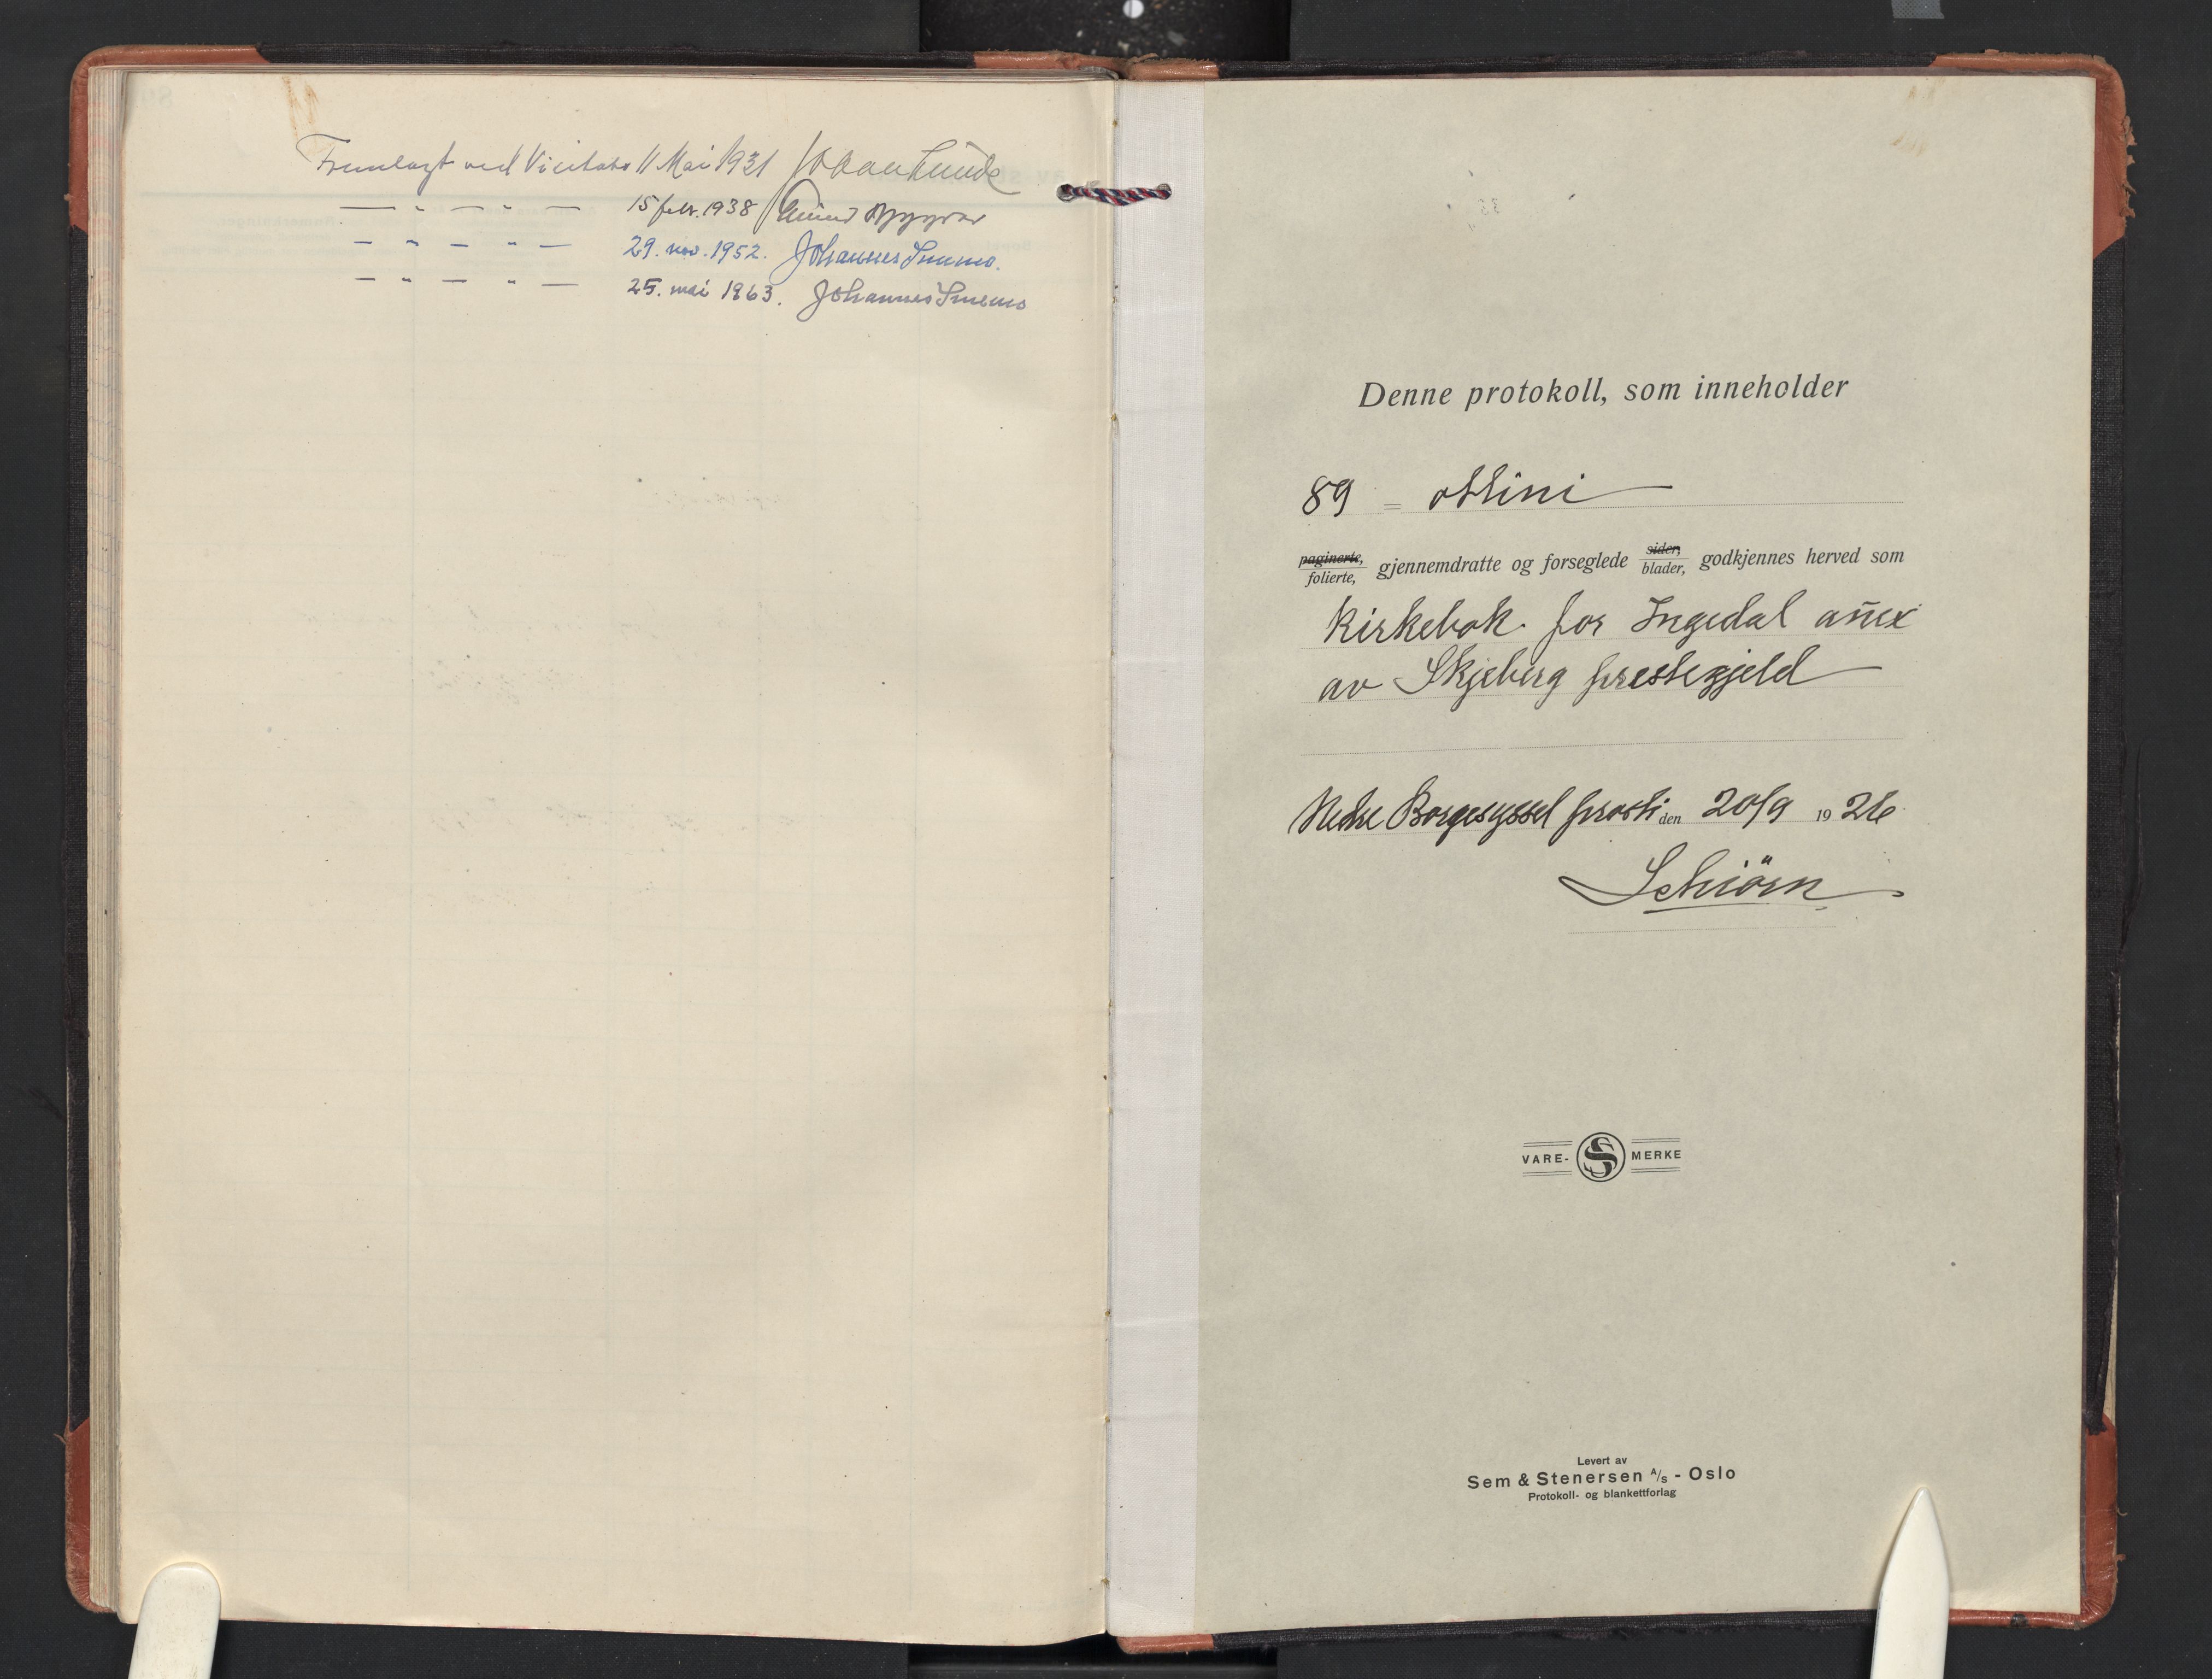 Fremlagt ved Visitats 11 Mai 1931 Johan Lunde
— " — " — 15 febr. 1938
— " — " — 29. nov. 1952. Johannes Smemo.
— " — " — 25. mai 1963. Johannes Smemo
Denne protokoll, som inneholder
89 = ottini —
paginerte, folierte, gjennemdratte og forseglede sider, blader, godkjennes herved som
Kirkebok for Ingedal an̄ex
av Skjeberg prestegjeld —
Nedre Borgesyssel prosti den 20/9 1926
Schiörn
VARE- S MERKE
Levert av
Sem & Stenersen A/s - Oslo
Protokoll- og blankettforlag